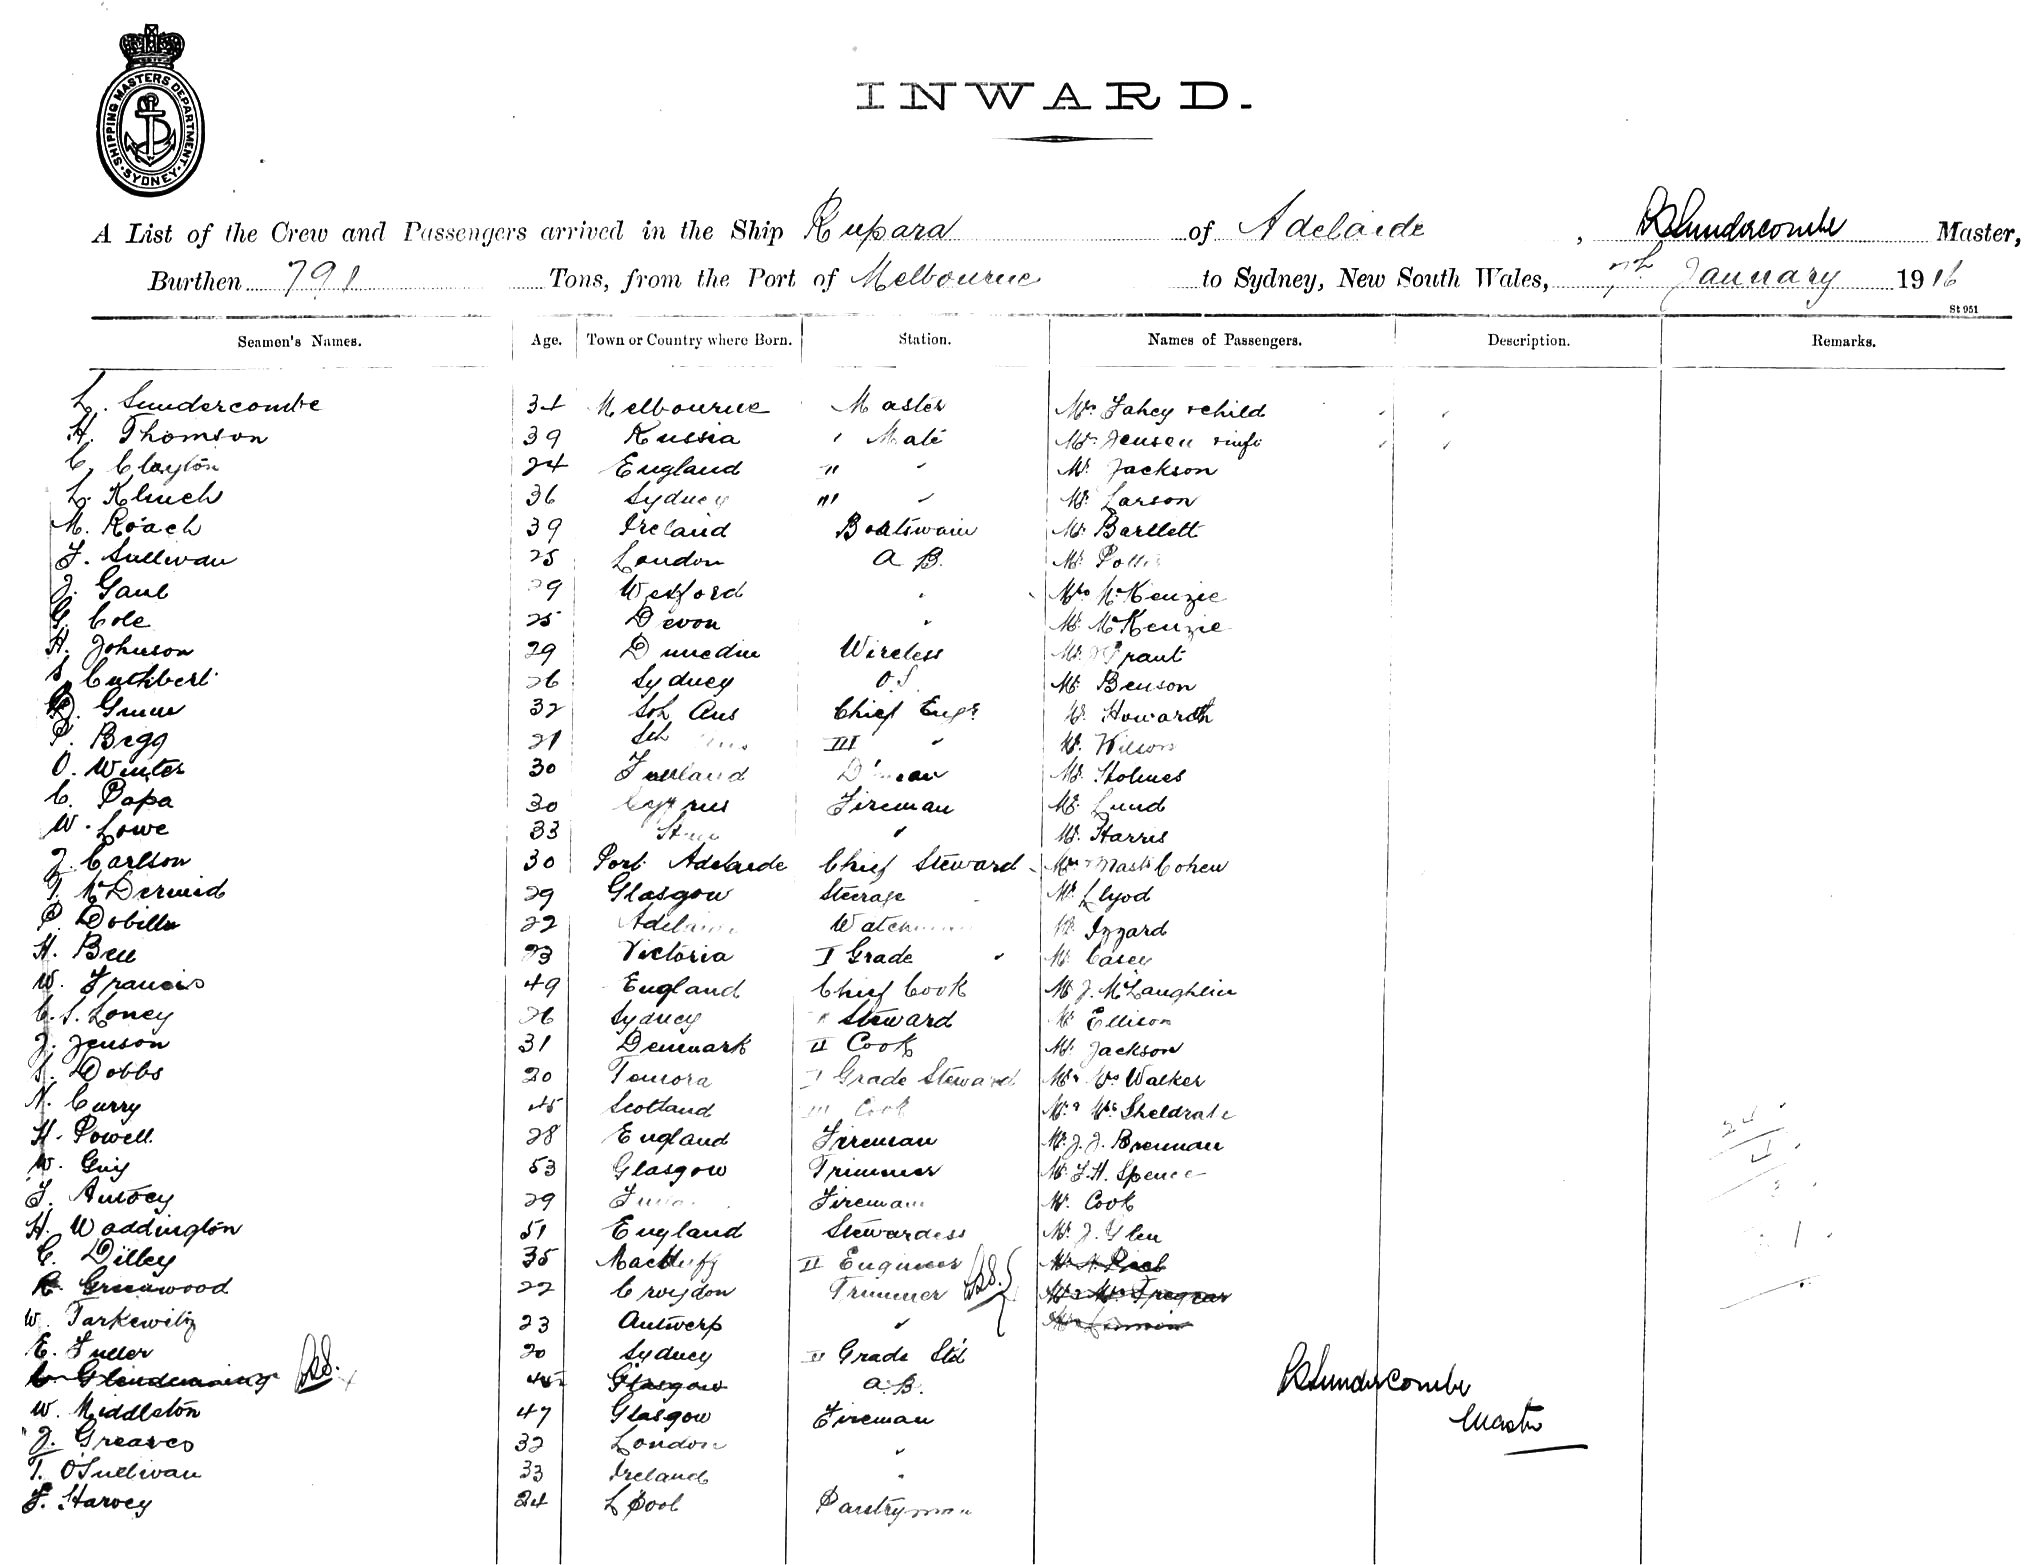 SHIPPING MASTERS DEPARTMENT · SYDNEY ·
INWARD.
A List of the Crew and Passengers arrived in the Ship Rupara of Adelaide, Sundercombe Master,
Burthen 791 Tons, from the Port of Melbourne to Sydney, New South Wales, 7th January 1916
St 951
Seamen's Names. Age. Town or Country where Born. Station. Names of Passengers. Description. Remarks.
L. Sundercombe 34 Melbourne Master Mrs Fahey & child
H. Thomson 39 Russia Mate Mr Jensen
C. Clayton 24 England " Mr Jackson
L. Klinch 36 Sydney "' Mr Larson
M. Roach 39 Ireland Boatswain Mr Bartlett
F. Sullivan 25 London A B. Mr
J. Gaul 29 Wexford Mrs McKenzie
G. Cole 25 Devon " Mr McKenzie
H. Johnson 29 Dunedin Wireless Mr Grant
S. Cuthbert 26 Sydney O.S. Mr Benson
32 Sth Aus Chief Engr Mr Howarth
P. Begg 21 Sth Aus III " Mr Wilson
O. Winter 30 Mr Holmes
C. Papa 30 Cyprus Fireman Mr Lund
W. Lowe 33 " Mr Harris
J. Carlson 30 Port Adelaide Chief Steward Mrs & Mast Cohen
T. McDermid 29 Glasgow Steerage Mr Llyod
P. 22 Adelaide Watchman Mr Izzard
H. Bell 23 Victoria I Grade " Mr Casey
W. Francis 49 England Chief Cook Mr J. McLaughlin
C. S. Loney 26 Sydney " Steward Mr Ellison
J. Jenson 31 Denmark II Cook Mr Jackson
Dobbs 20 Temora I Grade Steward Mr & Mrs Walker
N. Curry 45 Scotland III Cook Mr & Mrs Sheldrake
H. Powell 28 England Fireman Mr J. J. Brennan
W. Guy 53 Glasgow Trimmer Mr F. H. Spence
29 Fireman Mr Cook
H. Waddington 51 England Stewardess Mr J. Glen
C. Dilley 35 Macduff II Engineer
R. Greenwood 22 Croydon Trimmer
W. Tarkewitz 23 Antwerp "
E. Fuller 20 Sydney II Grade Std
C. Glendenning 45 Glasgow A.B. Sundercombe
W. Middleton 47 Glasgow Fireman Master
J. Greaves 32 London "
T. O'Sullivan 33 Ireland "
F. Harvey 24 L'Pool Pantryman